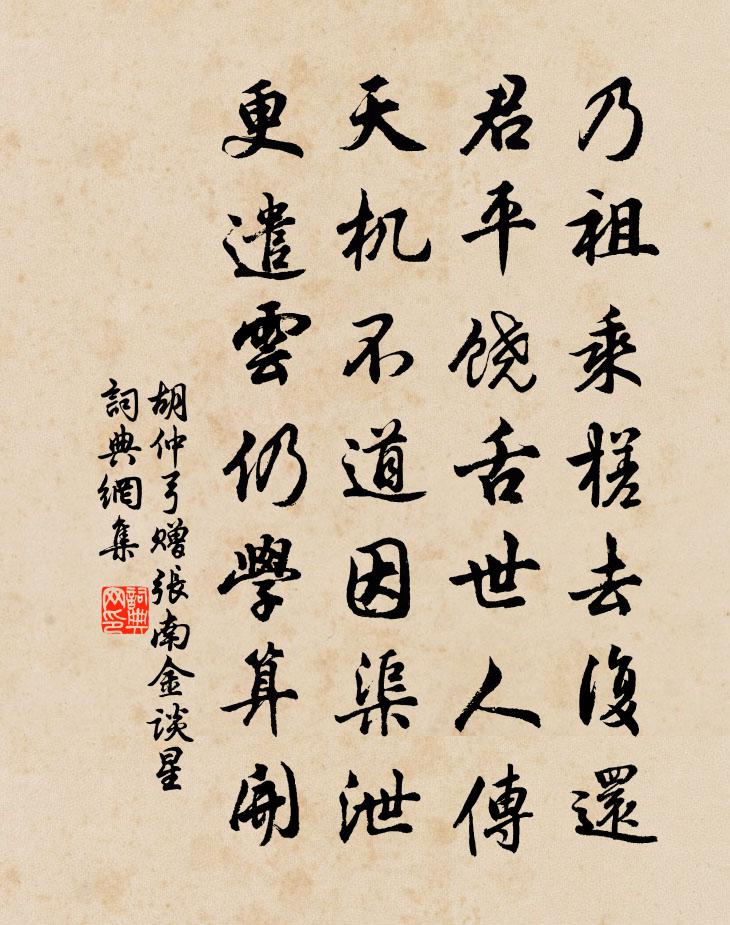 乃祖乘槎去復還
君平饶舌世人傳
天机不道因渠泄
更遣雲仍學算開
胡仲弓赠張南金谈星
詞典網集
詞典
网印